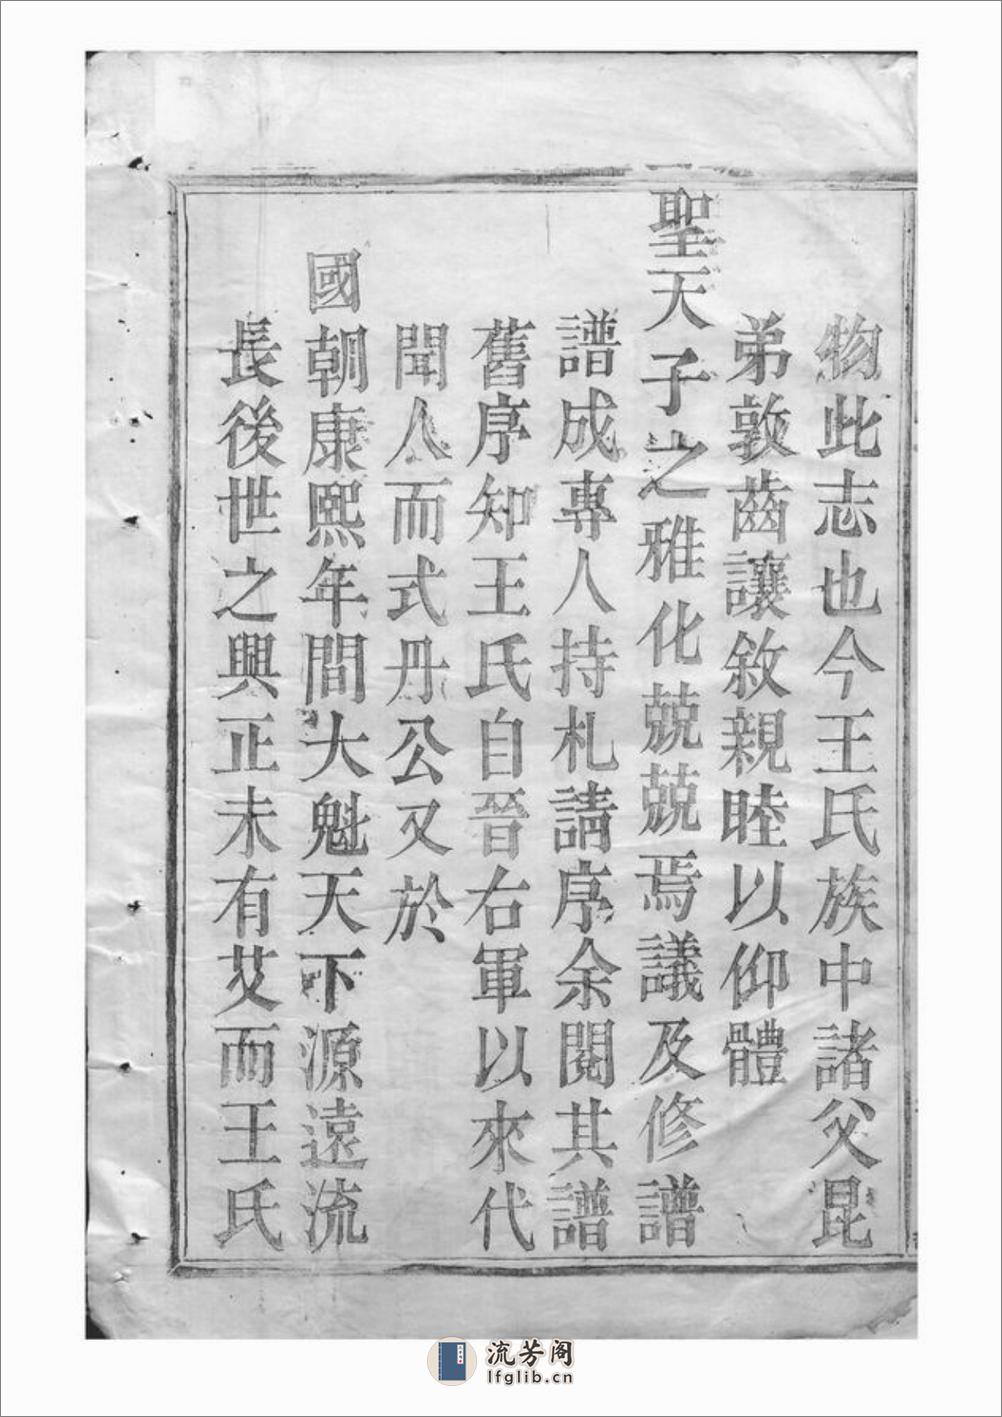 物此志也今王氏族中諸父昆
弟敦齒讓敘親睦以仰體
聖天子之雅化兢兢焉議及修譜
譜成專人持札請序余閱其譜
舊序知王氏自晉右軍以來代
聞人而式丹公又於
國朝康熙年間大魁天下源遠流
長後世之興正未有艾而王氏
流芳阁
lfglib.cn